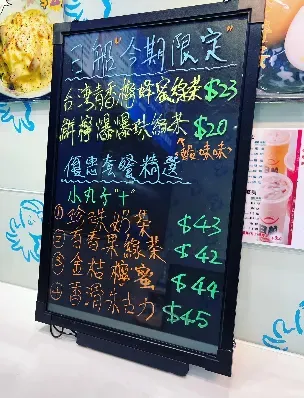 今期限定
台灣青香檸蜂蜜綠茶 $23
鮮檸爆爆珠綠茶 $20
優惠套餐精選
小丸子"+"
① 珍珠奶茶 $43
② 百香果綠茶 $42
③ 金桔檸蜜 $44
④ 香滑朱古力 $45